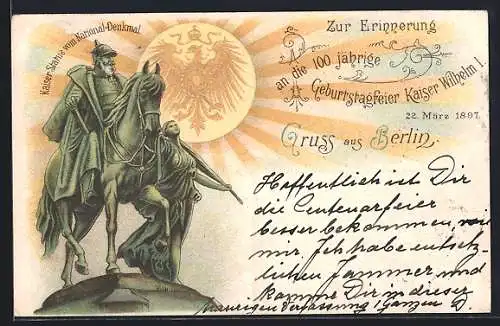 Kaiser-Statue vom National-Denkmal
Zur Erinnerung
an die 100 jährige
Geburtstagfeier Kaiser Wilhelm I.
22. März 1897.
Gruss aus Berlin.
Hoffentlich ist Dir
die Centenarfeier
besser bekommen, wie
mir. Ich habe entsetz-
lichen Jammer und
komme Dir in dieser
traurigen Verfassung 1 Ganzen